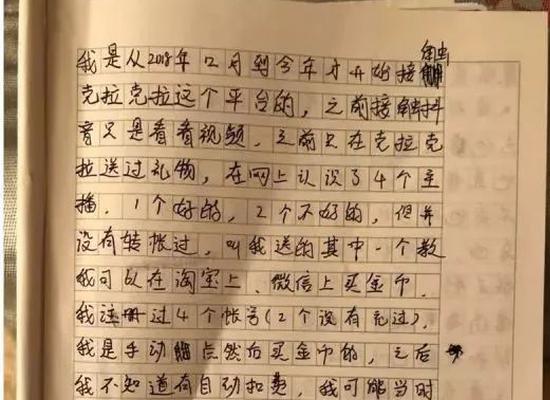 我是从2018年12月到今年才开始接触
克拉克拉这个平台的，之前接触抖
音只是看看视频，之前只在克拉克
拉送过礼物，在网上认识了4个主
播，1个好的，2个不好的，但并
没有转帐过，叫我送的其中一个教
我可以在淘宝上、微信上买金币，
我注册过4个帐号(2个没有充过)，
我是手动点然后买金币的，之后
我不知道有自动扣费，我可能当时